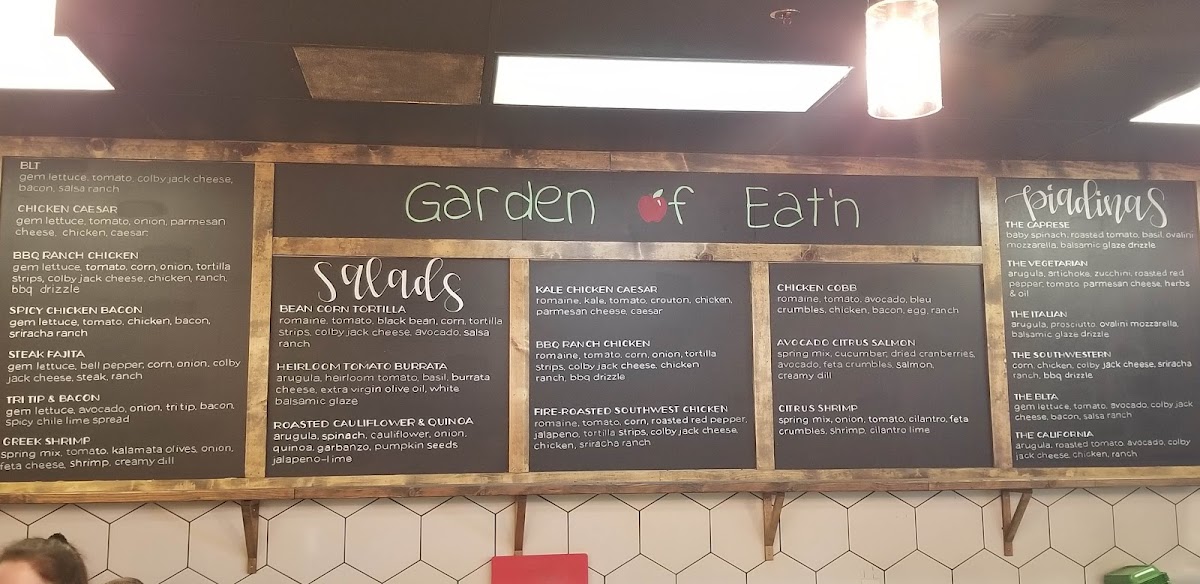 Garden of Eat'n
BLT
gem lettuce, tomato, colby jack cheese,
bacon, salsa ranch
CHICKEN CAESAR
gem lettuce, tomato, onion, parmesan
cheese, chicken, caesar
BBQ RANCH CHICKEN
gem lettuce, tomato, corn, onion, tortilla
strips, colby jack cheese, chicken, ranch,
bbq drizzle
SPICY CHICKEN BACON
gem lettuce, tomato, chicken, bacon,
sriracha ranch
STEAK FAJITA
gem lettuce, bell pepper, corn, onion, colby
jack cheese, steak, ranch
TRI TIP & BACON
gem lettuce, avocado, onion, tri tip, bacon,
spicy chile lime spread
GREEK SHRIMP
spring mix, tomato, kalamata olives, onion,
feta cheese, shrimp, creamy dill
Salads
BEAN CORN TORTILLA
romaine, tomato, black bean, corn, tortilla
strips, colby jack cheese, avocado, salsa
ranch
HEIRLOOM TOMATO BURRATA
arugula, heirloom tomato, basil, burrata
cheese, extra virgin olive oil, white
balsamic glaze
ROASTED CAULIFLOWER & QUINOA
arugula, spinach, cauliflower, onion,
quinoa, garbanzo, pumpkin seeds
jalapeno-lime
KALE CHICKEN CAESAR
romaine, kale, tomato, crouton, chicken,
parmesan cheese, caesar
BBQ RANCH CHICKEN
romaine, tomato, corn, onion, tortilla
strips, colby jack cheese, chicken
ranch, bbq drizzle
FIRE-ROASTED SOUTHWEST CHICKEN
romaine, tomato, corn, roasted red pepper,
jalapeno, tortilla strips, colby jack cheese,
chicken, sriracha ranch
CHICKEN COBB
romaine, tomato, avocado, bleu
crumbles, chicken, bacon, egg, ranch
AVOCADO CITRUS SALMON
spring mix, cucumber, dried cranberries,
avocado, feta crumbles, salmon,
creamy dill
CITRUS SHRIMP
spring mix, onion, tomato, cilantro, feta
crumbles, shrimp, cilantro lime
Piadinas
THE CAPRESE
baby spinach, roasted tomato, basil, ovalini
mozzarella, balsamic glaze drizzle
THE VEGETARIAN
arugula, artichoke, zucchini, roasted red
pepper, tomato, parmesan cheese, herbs
& oil
THE ITALIAN
arugula, prosciutto, ovalini mozzarella,
balsamic glaze drizzle
THE SOUTHWESTERN
corn, chicken, colby jack cheese, sriracha
ranch, bbq drizzle
THE BLTA
gem lettuce, tomato, avocado, colby jack
cheese, bacon, salsa ranch
THE CALIFORNIA
arugula, roasted tomato, avocado, colby
jack cheese, chicken, ranch